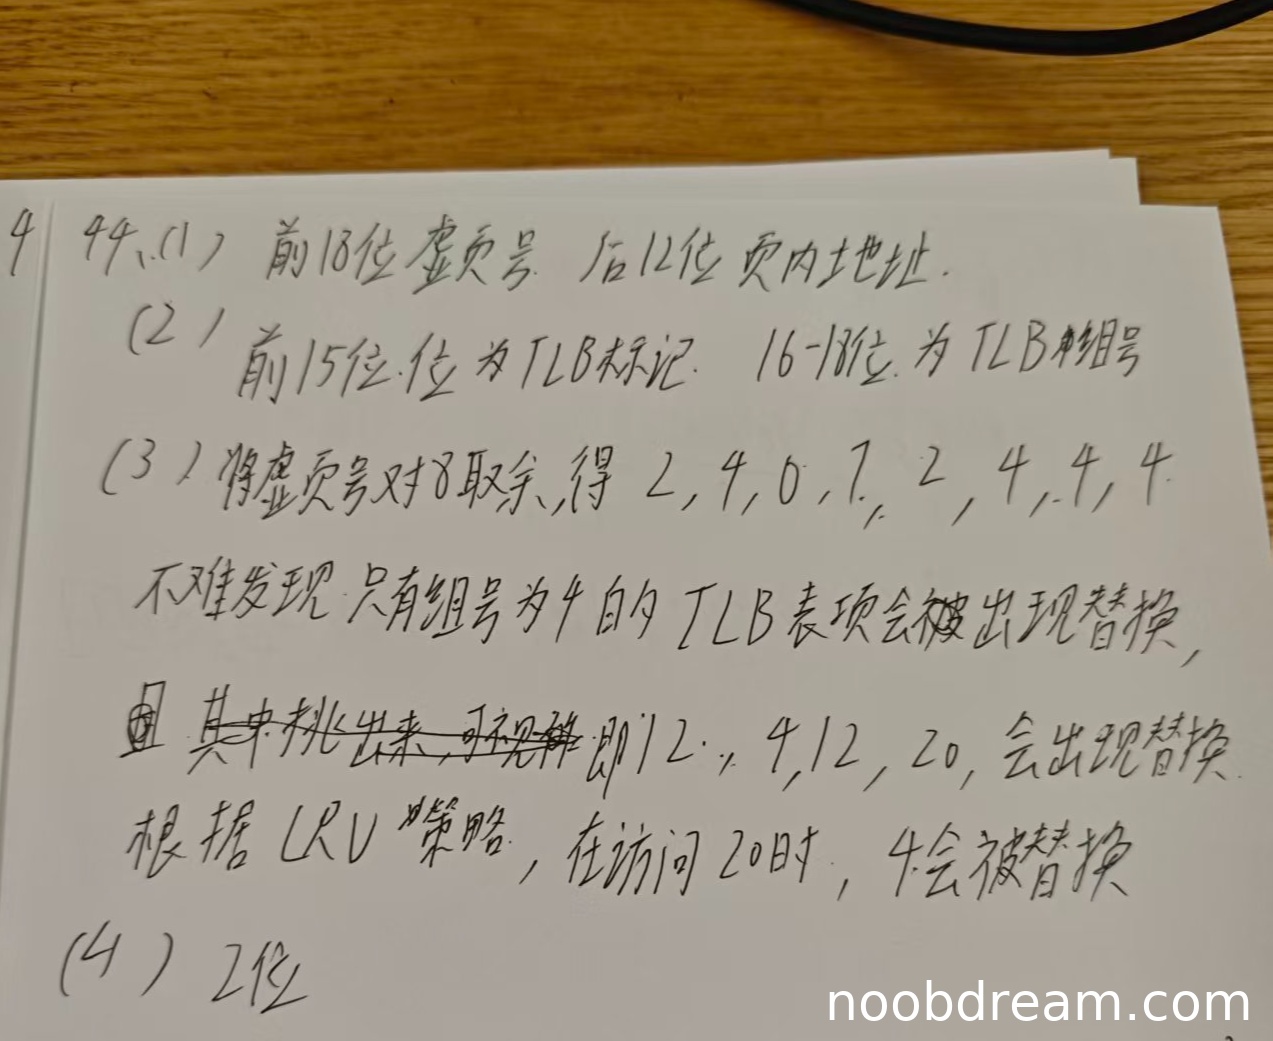 4
44、(1) 前18位虚页号 后12位页内地址.
(2) 前15位.位为TLB标记. 16-18位.为TLB组号
(3) 将虚页号对8取余,得 2,4,0,7,2,4,4,4
不难发现.只有组号为4的TLB表项会出现替换,
即12,4,12,20,会出现替换.
根据LRU策略,在访问20时,4会被替换
(4) 2位
noobdream.com